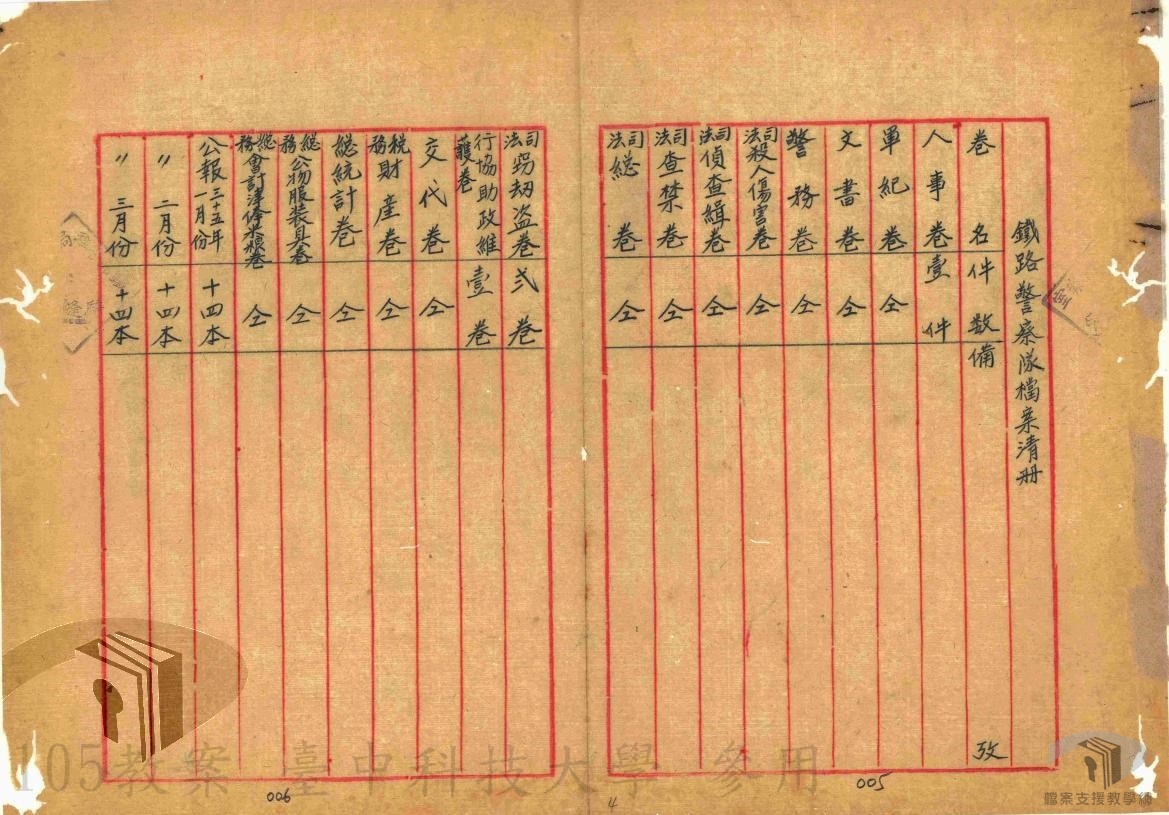 鐵路警察隊檔案清册
卷名 件数 備攷
人事卷 壹件
軍紀卷 仝
文書卷 仝
警務卷 仝
司法殺人傷害卷 仝
司法偵查緝卷 仝
司法查禁卷 仝
司法總卷 仝
005
司法竊劫盗卷 弍卷
行協助政維護卷 壹卷
交代卷 仝
税務財產卷 仝
總統計卷 仝
總務公物服装具卷 仝
總務會計津俸卷 仝
公報三十五年一月份 十四本
〃 二月份 十四本
〃 三月份 十四本
006
4
105教案 臺中科技大學 參用
檔案支援教學網